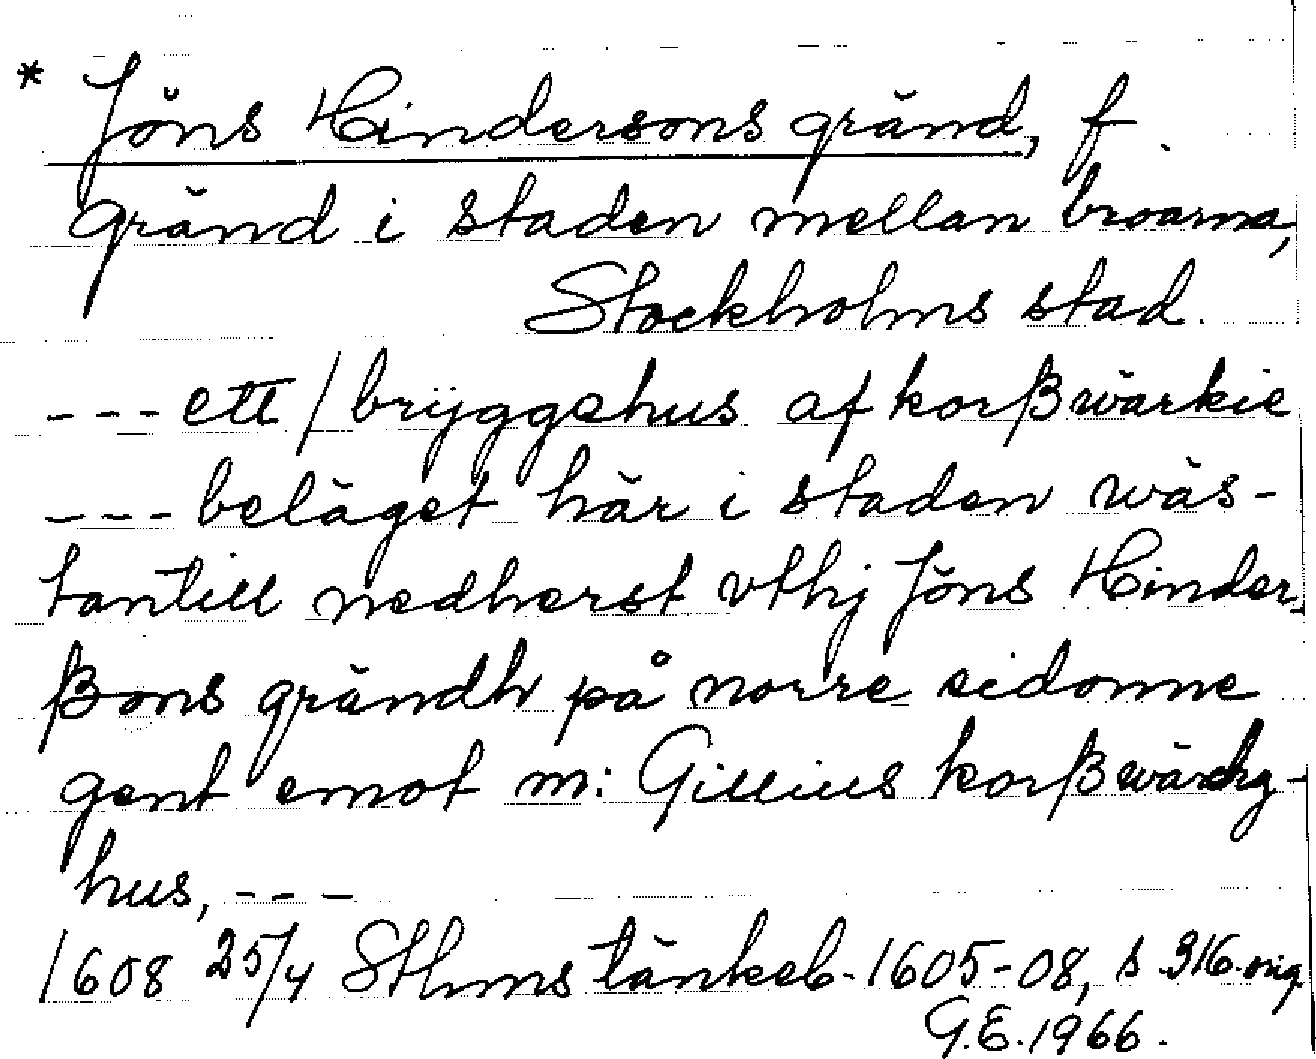 * Jöns Hindersons gränd, f.
gränd i staden mellan broarna,
Stockholms stad.
--- ett / bryggehus af korßwärkie
--- beläget här i staden wäs-
tantill nedherst vthj Jöns Hinder-
ßons grändh på norre sidonne
gent emot m: Gillius korßwärchz-
hus, ---
1608 25/4 Sthms tänkeb. 1605-08, s 316 orig.
G.E. 1966.